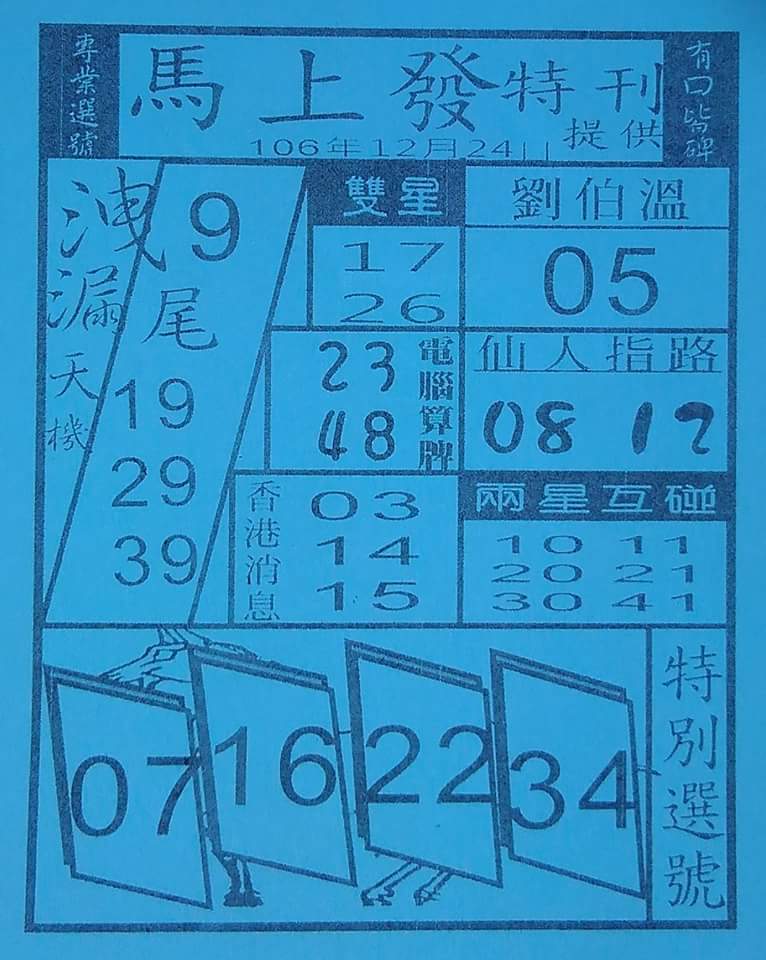 專業選號
馬上發特刊
提供
106年12月24日
有口皆碑
洩漏天機
9
尾
19
29
39
雙星
17
26
劉伯溫
05
23
48
電腦算牌
仙人指路
08 12
香港消息
03
14
15
兩星互碰
10 11
20 21
30 41
07 16 22 34
特別選號